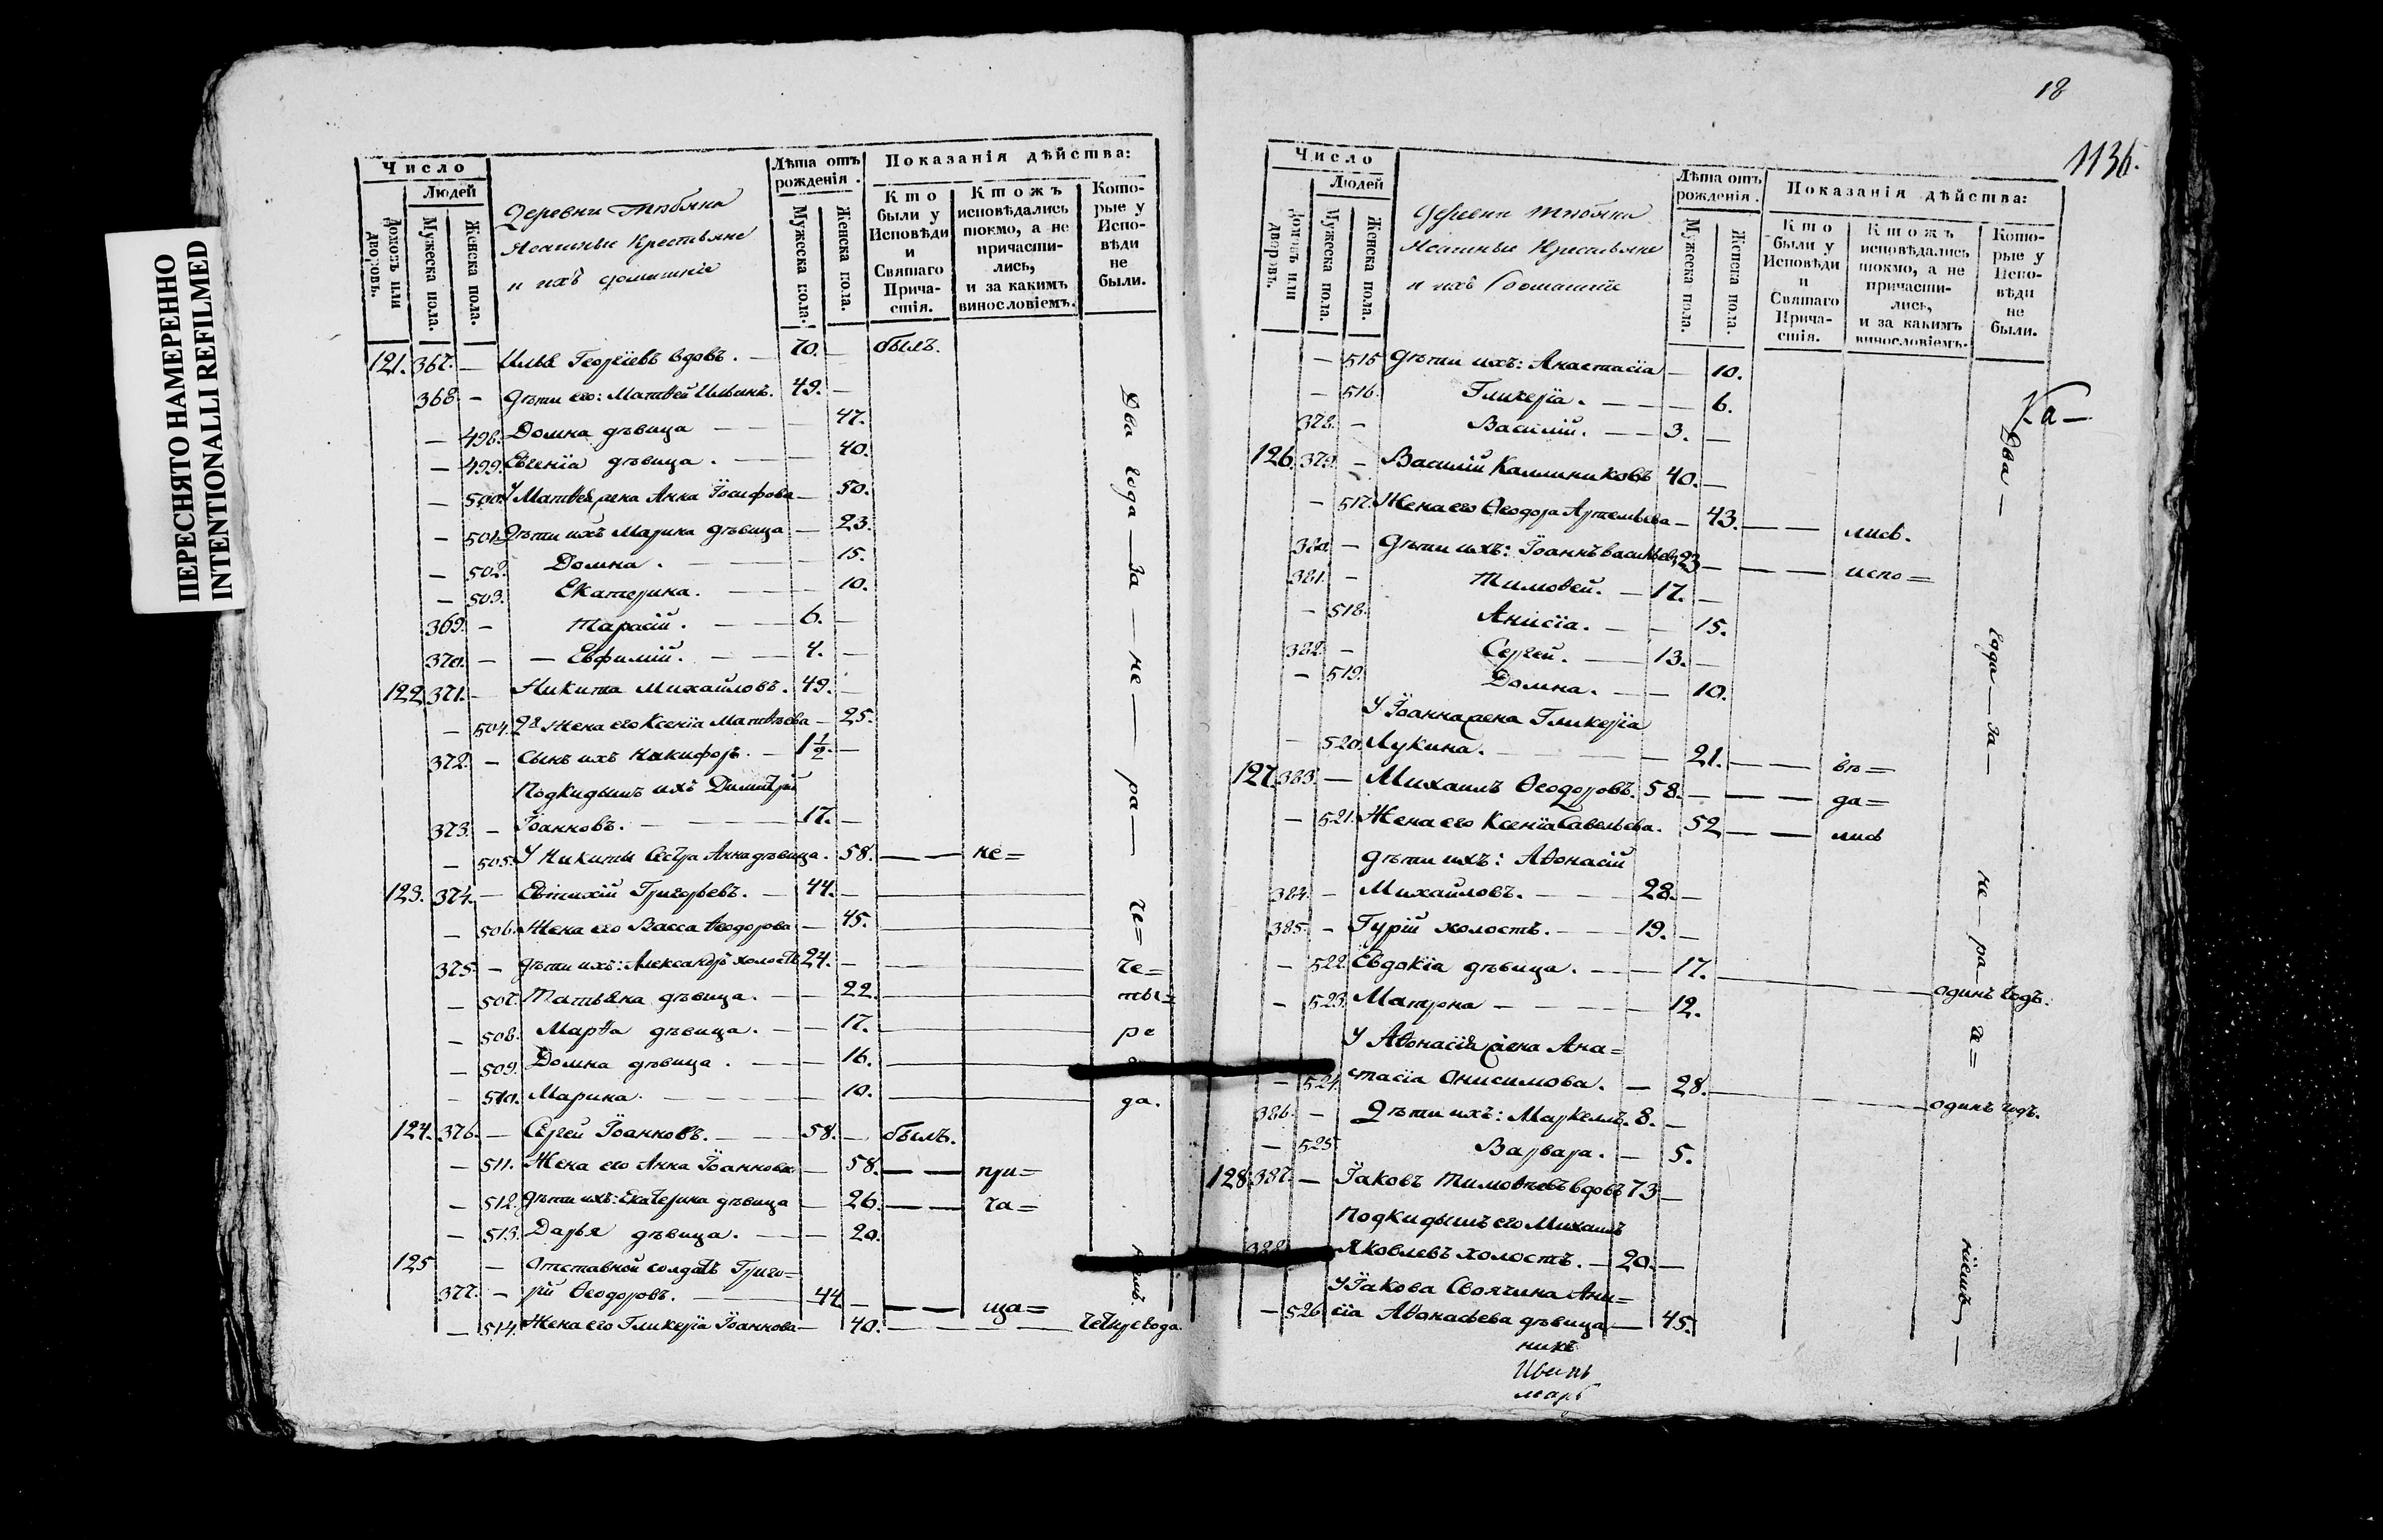 ПЕРЕСНЯТО НАМЕРЕННО
INTENTIONALLI REFILMED
Число
Людей
Домовъ или дворовъ.
Мужеска пола.
Женска пола.
Деревни
Ясашные Крестьяне
и ихъ домашніе
Лѣта отъ рожденія.
Мужеска пола.
Женска пола.
Показанія дѣйства:
Кто были у Исповѣди и Святаго Причастія.
Ктожъ исповѣдались токмо, а не причастились, и за какимъ винословіемъ.
Которые у Исповѣди не были.
121. 367. — Илья Георгіевъ вдовъ. — 70. — былъ.
368. — Дѣти его: Матѳей Ильинъ. 49. —
— 498. Домна дѣвица — — 47.
— 499. Евгенія дѣвица. — 40.
— 500. У Матѳея жена Анна Іосифова — 50.
— 501. Дѣти ихъ Марина дѣвица — 23.
— 502. Домна. — — 15.
— 503. Екатерина. — — 10.
369. — Тарасій. — — 6. —
370. — — Евфимій. — — 4. —
122. 371. — Никита Михайловъ. 49. —
— 504. 2я Жена его Ксенія Матѳѣева — 25.
372. — Сынъ ихъ Никифоръ. — 1 1/2. —
Подкидышъ ихъ Димитрій
373. — Іоанновъ. — — 17. —
— 505. У Никиты Сестра Анна дѣвица. 58. — — не=
123. 374. — Евтихій Григорьевъ. — 44. —
— 506. Жена его Васса Ѳеодорова — 45.
375. — Дѣти ихъ: Александръ холостъ 24. — че=
— 507. Татьяна дѣвица. — 22. ты=
— 508. Марѳа дѣвица. — 17. ре
— 509. Домна дѣвица. — 16.
— 510. Марина. — — 10. да.
124. 376. — Сергей Іоанновъ. — 58. — былъ.
— 511. Жена его Анна Іоаннова — 58. — — при=
— 512. Дѣти ихъ: Екатерина дѣвица — 26. — — ча=
— 513. Дарья дѣвица. — — 20.
125 — Отставной солдатъ Григо=
377. — рій Ѳеодоровъ. — 44. — — — ща=
— 514. Жена его Гликерія Іоаннова — 40. — — четыре года.
Два года — за — не — ра — че=
18
1136.
Число
Людей
Домовъ или дворовъ.
Мужеска пола.
Женска пола.
Деревни
Ясашные Крестьяне
и ихъ домашніе
Лѣта отъ рожденія.
Мужеска пола.
Женска пола.
Показанія дѣйства:
Кто были у Исповѣди и Святаго Причастія.
Ктожъ исповѣдались токмо, а не причастились, и за какимъ винословіемъ.
Которые у Исповѣди не были.
— 515. Дѣти ихъ: Анастасія — 10.
— 516. Гликерія. — — 6.
378. — Василій. — — 3. —
126. 379. — Василій Каллиниковъ 40. —
— 517. Жена его Ѳеодора Артемьева — 43. — — лись.
380. — Дѣти ихъ: Іоаннъ Васильевъ 23 — — — испо=
381. — Тимоѳей. — 17. —
— 518. Анисія. — — 15.
382. — Сергей. — 13. —
— 519. Домна. — — 10.
У Іоанна жена Гликерія
— 520. Лукина. — — 21. — — вѣ=
127. 383. — Михаилъ Ѳеодоровъ. 58. — — — да=
— 521. Жена его Ксенія Савельева. 52 — — лись
Дѣти ихъ: Аѳонасій
384. — Михайловъ. — — 28. —
385. — Гурій холостъ. — 19. —
— 522. Евдокія дѣвица. — — 17. — одинъ годъ.
— 523. Матрона — — 12.
У Аѳонасія жена Ана=
— 524. стасія Онисимова. — 28. — одинъ годъ.
386. — Дѣти ихъ: Маркеллъ. 8. —
— 525. Варвара. — 5.
128. 387. — Іаковъ Тимоѳѣевъ вдовъ 73 —
Подкидышъ его Михаилъ
388. Яковлевъ холостъ. — 20. —
У Іакова Своячина Ани=
— 526. сія Аѳонасьева дѣвица — 45.
Два — года — за — не — ра — че= ніемъ —